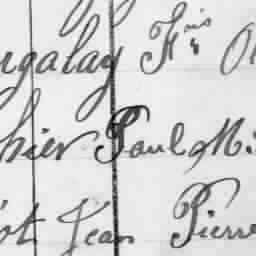 rgalay Fris
hier Paul Mi
ot Jean Pierre